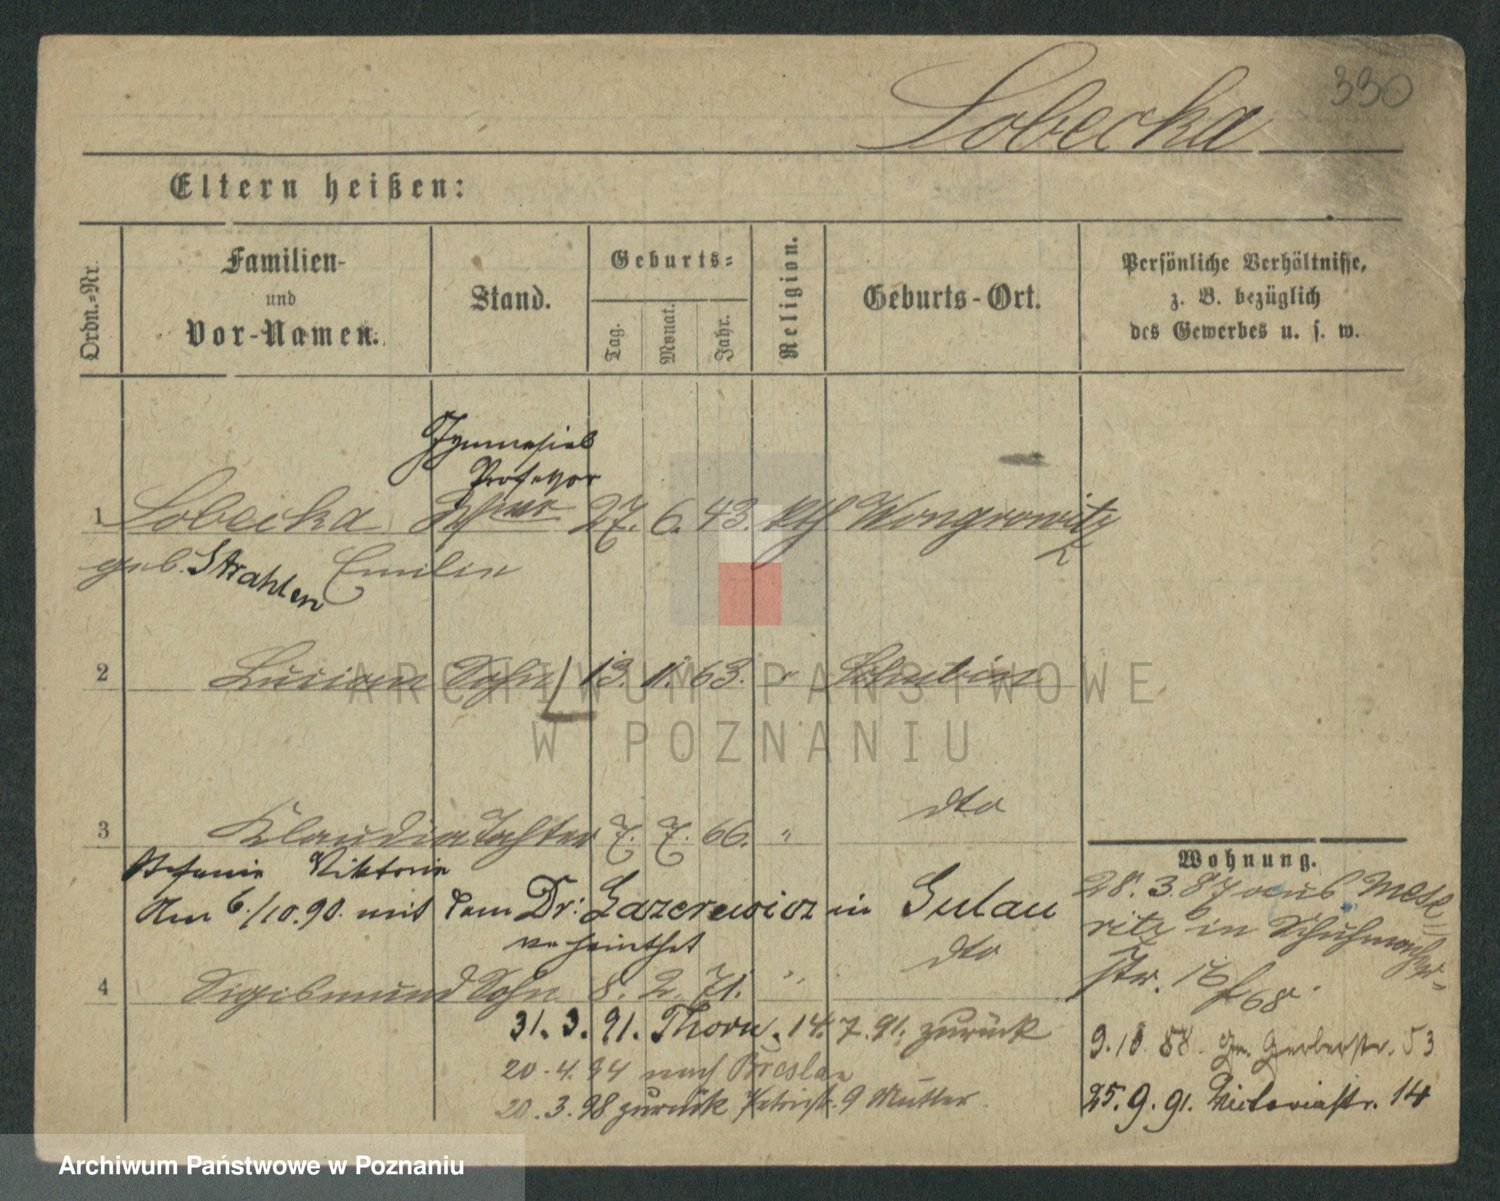 330
Lobecka
Eltern heißen:
Ordn.-Nr.
Familien-
und
Vor-Namen.
Stand.
Geburts-
Tag.
Monat.
Jahr.
Religion.
Geburts-Ort.
Persönliche Verhältnisse,
z. B. bezüglich
des Gewerbes u. s. w.
Gymnasial
Professor
1 Lobecka 27. 6. 43. kth Wongrowitz
geb. Strahlen Emilie
2 Lucian Sohn 13. 11. 63. " Schubin
3 Klaudia Tochter 7. 7. 66. " dto
Stefanie Viktoria
Am 6./10.90. mit dem Dr: Lazarewicz in Gulau
verheirathet
4 Sigismund Sohn 8. 2. 71. " dto
31.3.91. Thorn. 14.7.91. zurück
20.4.94 nach Breslau
20.3.98 zurück Petristr. 9 Mutter
Wohnung.
28.3.87 aus Mese
ritz in Schuhmacher-
str. 16 f 68
9.10.88. Gr. Gerberstr. 53
25.9.91. Victoriastr. 14
ARCHIWUM PAŃSTWOWE
W POZNANIU
Archiwum Państwowe w Poznaniu